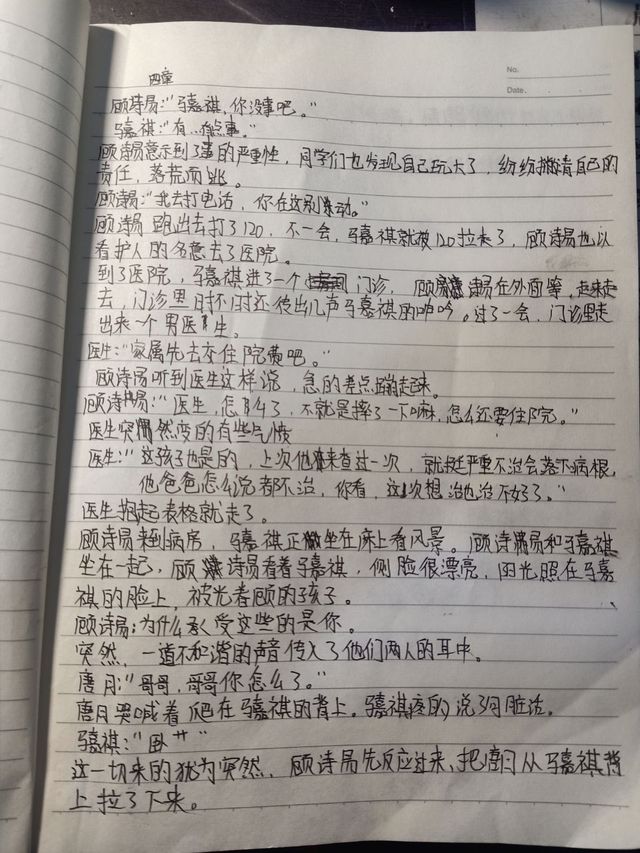 No.
四章
Date.
顾诗易:“马嘉祺,你没事吧。”
马嘉祺:“有…有点事。”
顾诗易意示到了事的严重性,同学们也发现自己玩大了,纷纷推着自己的
责任,落荒而逃。
顾诗易:“我去打电话,你在这别乱动。”
顾诗易跑出去打了120,不一会,马嘉祺就被120拉走了,顾诗易也以
看护人的名意去了医院。
到了医院,马嘉祺进了一个门诊,顾诗易在外面等,走来走
去,门诊里时不时还传出几声马嘉祺的呻吟。过了一会,门诊里走
出来一个男医生。
医生:“家属先去交住院费吧。”
顾诗易听到医生这样说,急的差点蹦起来。
顾诗易:“医生,怎么了,不就是摔了一下嘛,怎么还要住院。”
医生突然变的有些气愤
医生:“这孩子也是的,上次他来查过一次,就挺严重不治会落下病根,
他爸爸怎么说都不治,你看,这次想治也治不好了。”
医生抱起表格就走了。
顾诗易来到病房,马嘉祺正坐在床上看风景。顾诗易和马嘉祺
坐在一起,顾诗易看着马嘉祺,侧脸很漂亮,阳光照在马嘉
祺的脸上,被光眷顾的孩子。
顾诗易:为什么承受这些的是你。
突然,一道不和谐的声音传入了他们两人的耳中。
唐月:“哥哥,哥哥你怎么了。”
唐月哭喊着爬在马嘉祺的背上。马嘉祺疼的说了句脏话。
马嘉祺:“卧艹”
这一切来的犹为突然,顾诗易先反应过来,把唐月从马嘉祺背
上拉了下来。